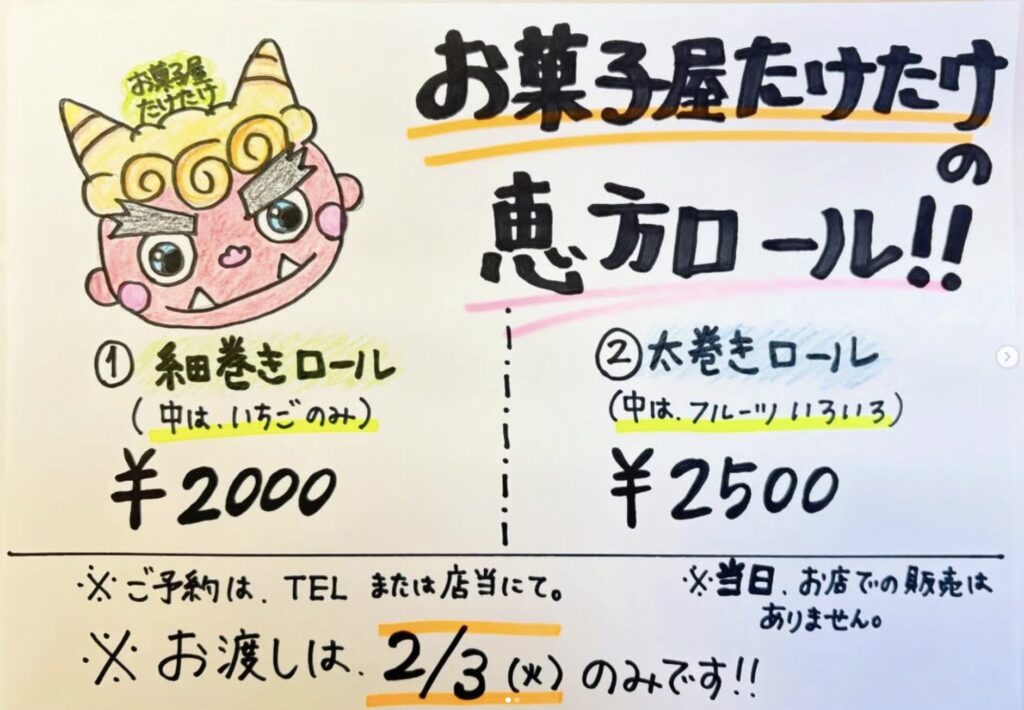 お菓子屋
たけたけ
お菓子屋たけたけ
の
恵方ロール!!
① 細巻きロール
(中は、いちごのみ)
¥2000
② 太巻きロール
(中は、フルーツいろいろ)
¥2500
※ご予約は、TEL または店当にて。
※当日、お店での販売は
ありません。
※お渡しは、2/3(火)のみです!!